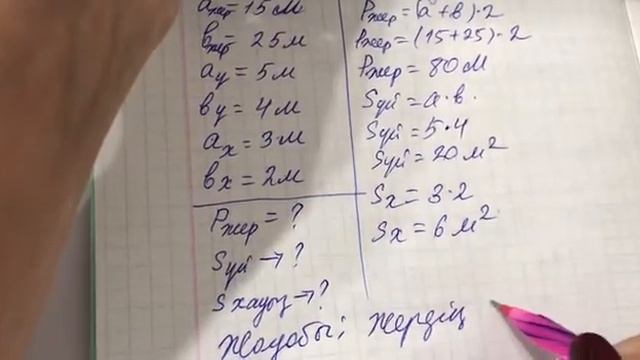 aжер=15м
вжер= 25м
aу = 5м
ву = 4м
aх = 3м
вх = 2м
Pжер = ?
Sүй → ?
Sхауыз → ?
Pжер = (a+в)·2
Pжер = (15+25)·2
Pжер = 80м
Sүй = a·в.
Sүй = 5·4
Sүй = 20м²
Sх = 3·2
Sх = 6м²
Жауабы; жердің